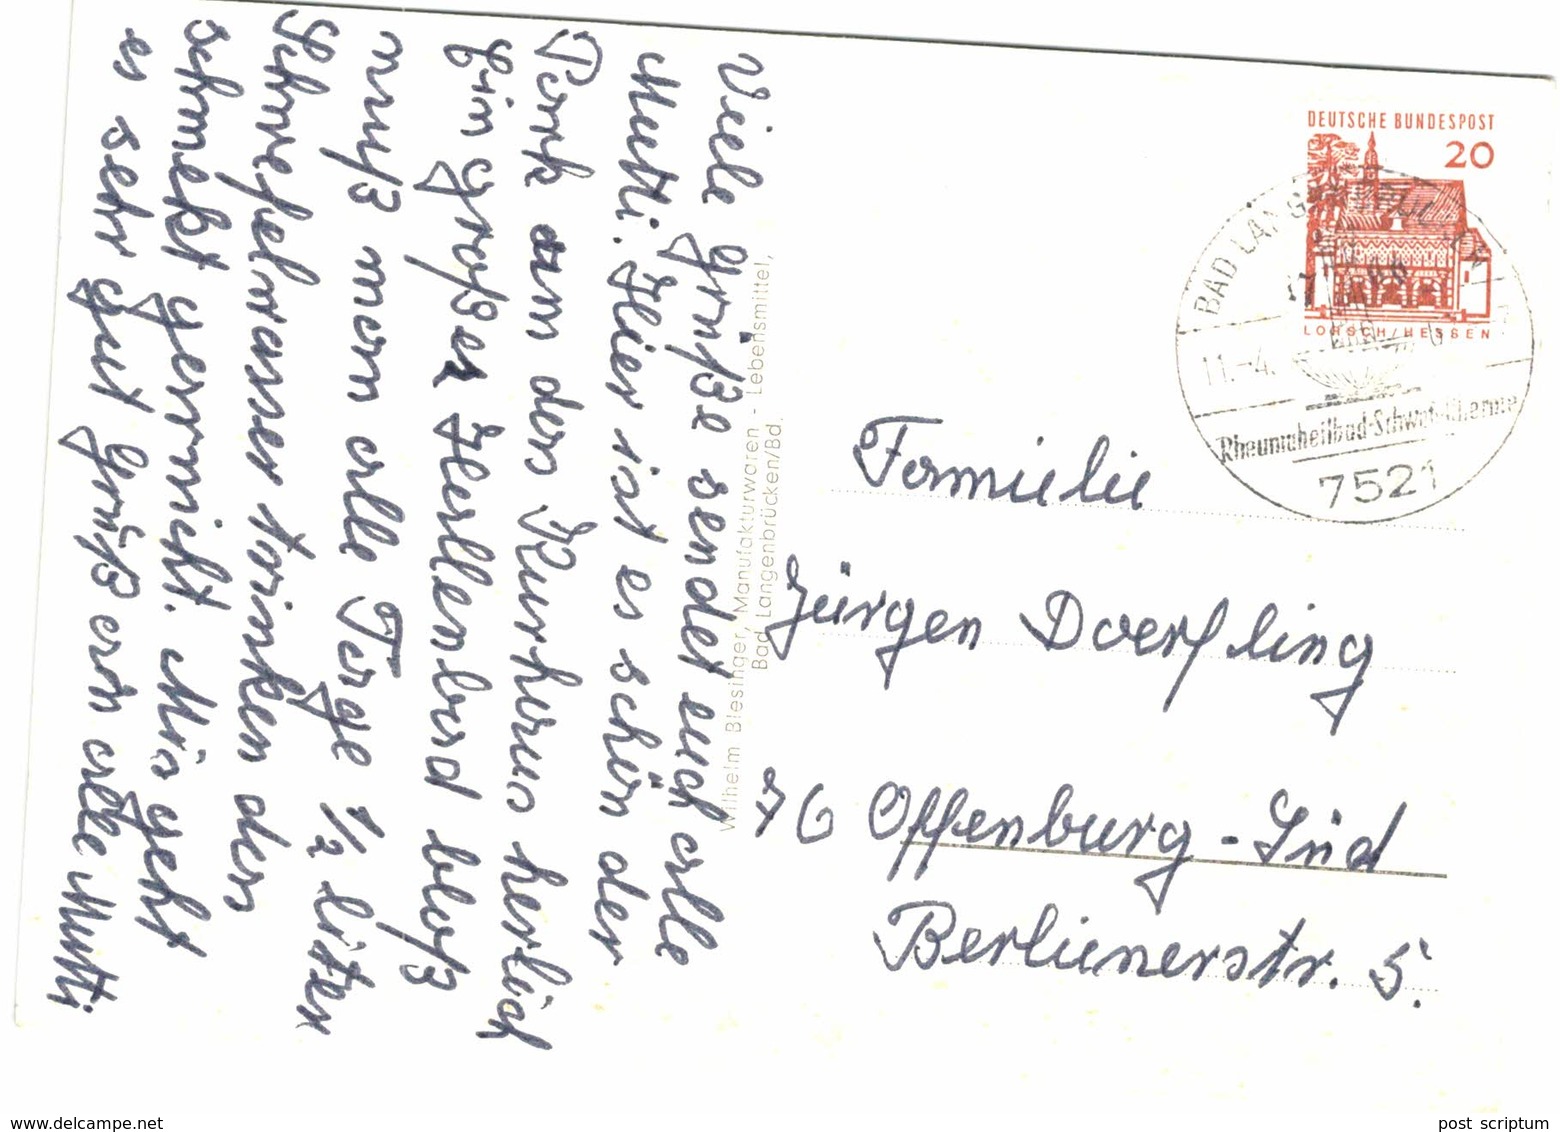 Viele Grüße sendet euch alle
Mutti. Hier ist es schön der
Park am des Kurhaus herlich
Ein großes Hallenbad bloß
muß man alle Tage 1/2 liter
Schwefelwasser trinken das
schmekt garnicht. Mir geht
es sehr gut Gruß an alle Mutti
Wilhelm Blesinger, Manufakturwaren - Lebensmittel,
Bad Langenbrücken/Bd.
DEUTSCHE BUNDESPOST
20
LORSCH/HESSEN
BAD LANGENBRÜCKEN
11.-4.
Rheumaheilbad-Schwefeltherme
7521
Familie
Jürgen Doerfling
76 Offenburg-Süd
Berlinerstr. 5.
www.delcampe.net
post scriptum